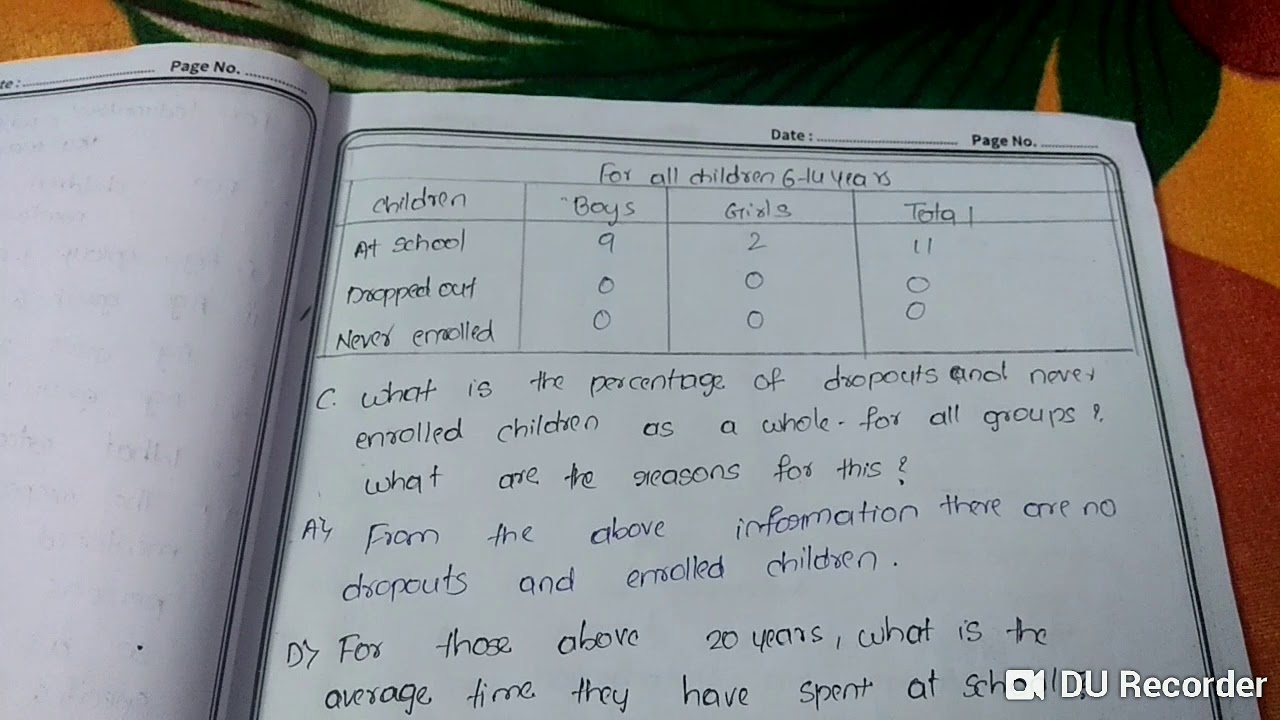 te:
Page No.
Date :
Page No.
For all children 6-14 years
Children Boys Girls Total
At school 9 2 11
Dropped out 0 0 0
Never enrolled 0 0 0
C. What is the percentage of dropouts and never
enrolled children as a whole. for all groups?
What are the reasons for this?
A) From the above information there are no
dropouts and enrolled children.
D) For those above 20 years, what is the
average time they have spent at
DU Recorder